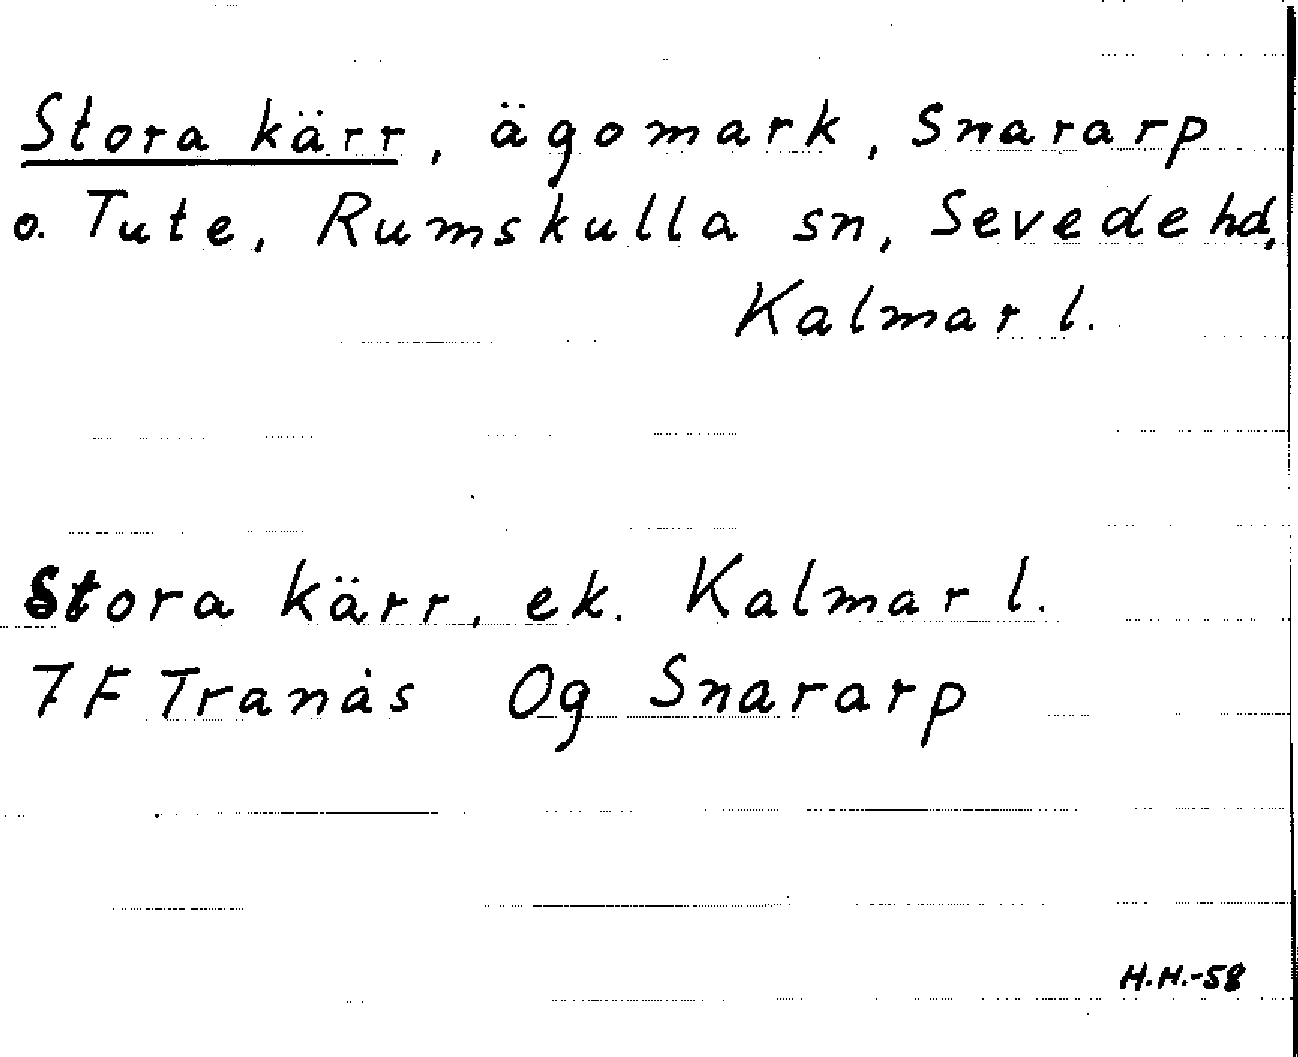 Stora kärr, ägomark, Snararp
o. Tute, Rumskulla sn, Sevede hd,
Kalmar l.
Stora kärr, ek. Kalmar l.
7F Tranås Og Snararp
H.H.-58